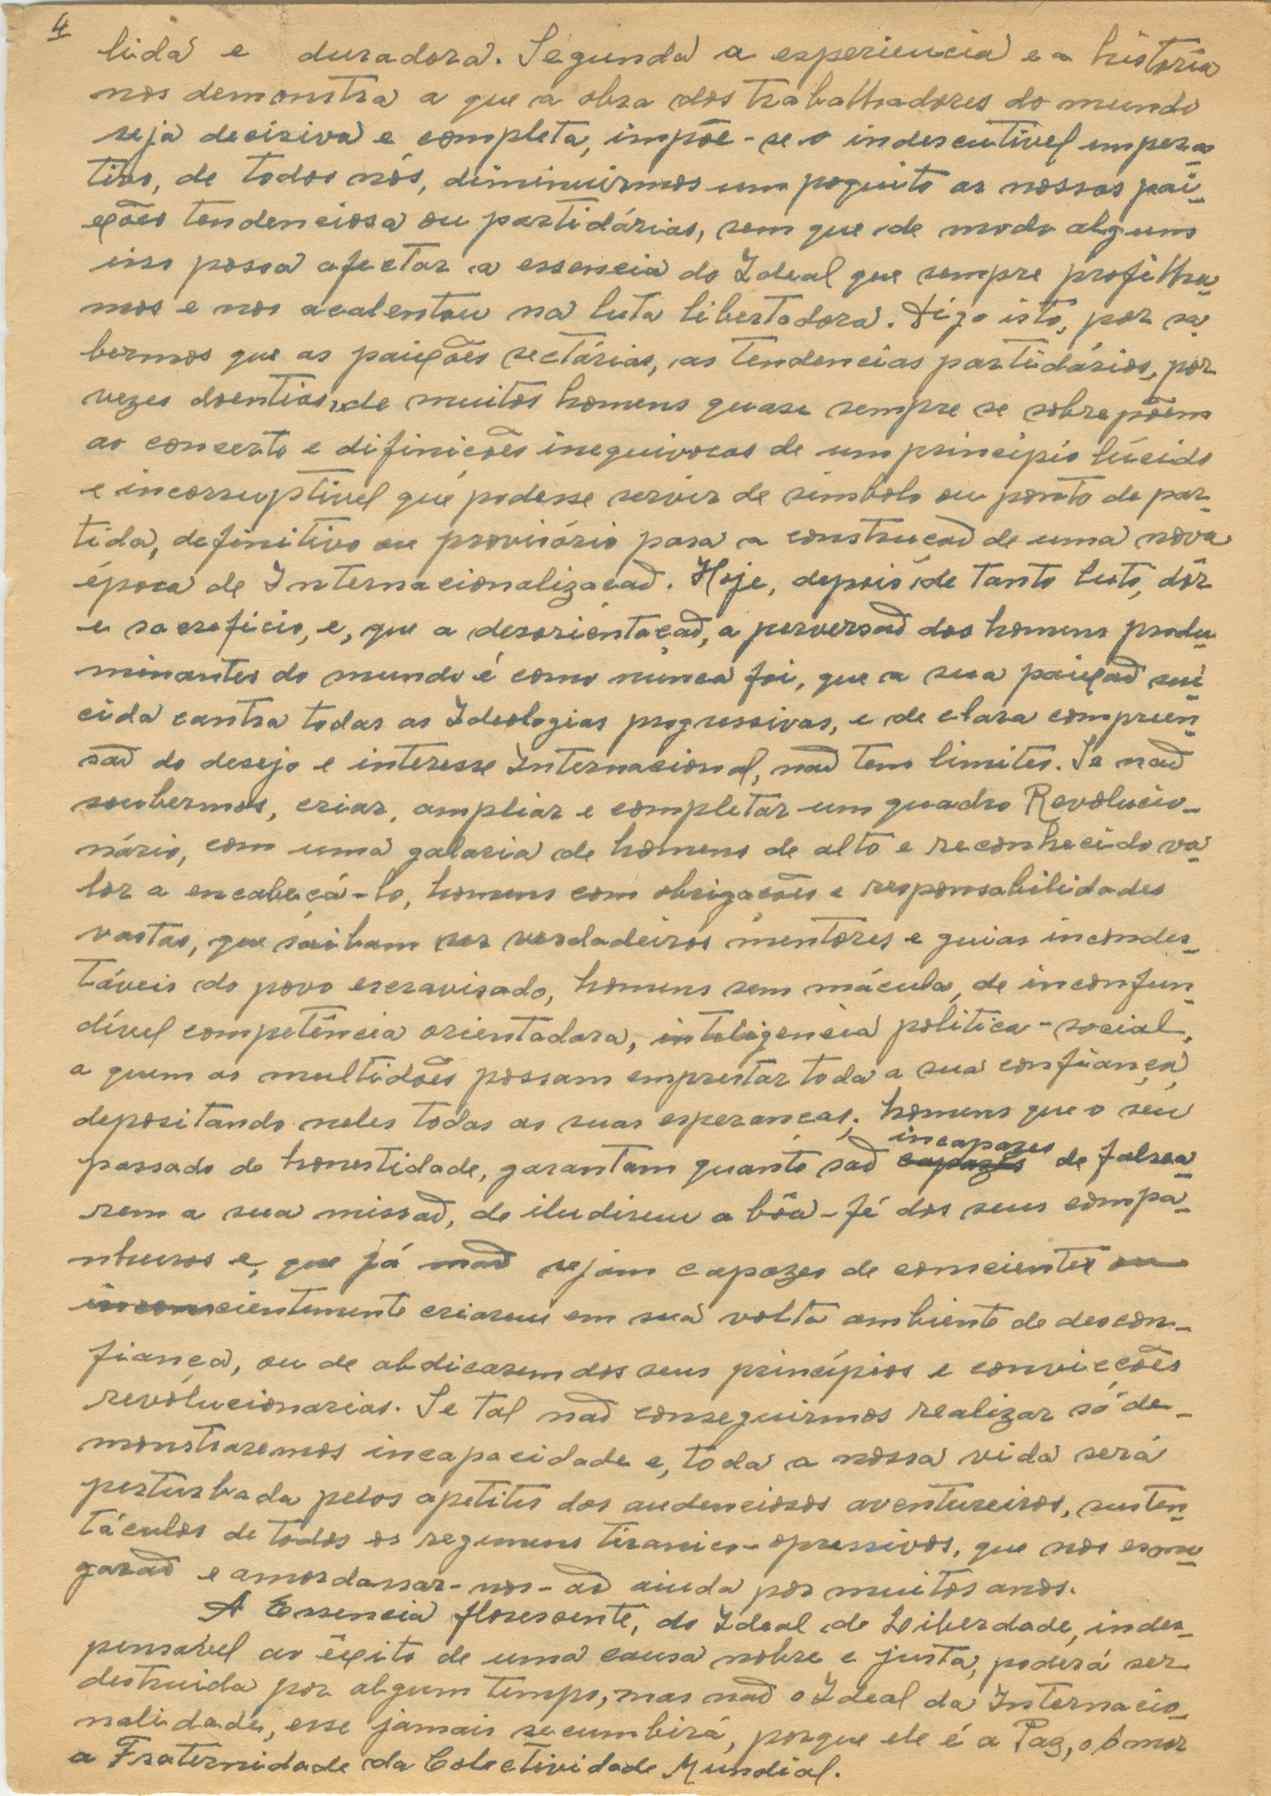 4
lida e duradora. Segunda a experiencia e a história
nos demonstra a que a obra dos trabalhadores do mundo
seja decisiva e completa, impõe-se o indescutivel impera-
tivo, de todos nós, diminuirmos um poquito as nossas pai-
xões tendenciosa ou partidárias, sem que de modo algum
isso possa afectar a essencia do Ideal que sempre profilha-
mos e nos acalentou na luta libertadora. Digo isto, por sa-
bermos que as paixões sectárias, as tendencias partidários, por
vezes doentias, de muitos homens quase sempre se sobrepõem
ao concerto e difinicões inequivocas de um principio lúcido
e incorruptivel que podesse servir de simbolo ou ponto de par-
tida, definitivo ou provisório para a construçaõ de uma nova
época de Internacionalizacaõ. Hoje, depois de tanto luto, dôr
e sacreficio, e, que a desorientaçaõ, a perversaõ dos homens predu-
minantes do mundo é como nunca foi, que a sua paixaõ sui-
cida contra todas as Ideologias progressivas, e de clara compreen-
saõ do desejo e interesse Internacional, naõ tem limites. Se naõ
soubermos, criar, ampliar e completar um quadro Revolucio-
nário, com uma galaria de homens de alto e reconhecido va-
lor a encabeçá-lo, homens com obrigações e responsabilidades
vastas, que saibam ser verdadeiros mentores e guias incondes-
táveis do povo escravisado, homens sem mácula, de inconfun-
dível competência orientadora, inteligencia politica-social,
a quem as multidões possam emprestar toda a sua confiança,
depositando neles todas as suas esperanças; homens que o seu
passado de honestidade, garantam quanto saõ capazes incapazes de falsea-
rem a sua missaõ, de iludirem a bôa-fé dos seus compa-
nheiros e, que já maõ sejam capazes de conscientes ou
inconscientemente criarem em sua volta ambiente de descon-
fiança, ou de abdicarem dos seus princípios e convicções
revolucionarias. Se tal naõ conseguirmos realizar só de-
monstraremos incapacidade e, toda a nossa vida será
perturbada pelos apetites dos audenciosos aventureiros, susten-
táculos de todos os regimens tiranico-opressivos, que nos esma-
garaõ e amordassar-nos-aõ ainda por muitos anos.
A Essencia florescente, do Ideal de Liberdade, indes-
pensável ao êxito de uma causa nobre e justa, poderá ser
destruida por algum tempo, mas naõ o Ideal da Internacio-
nalidade, esse jamais secumbirá, porque ele é a Paz, o Amor
a Fraternidade da Colectividade Mundial.